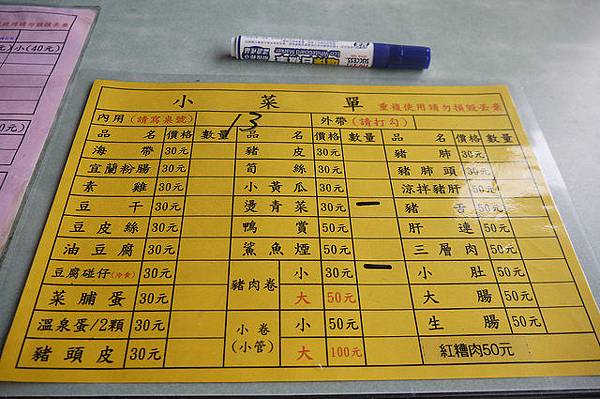 小菜單 重複使用請勿損毀丟棄
內用(請寫桌號) 13 外帶(請打勾)
品名 價格 數量 品名 價格 數量 品名 價格 數量
海帶 30元 豬皮 30元 豬肺 30元
宜蘭粉腸 30元 筍絲 30元 豬肺頭 30元
素雞 30元 小黃瓜 30元 涼拌豬肝 30元
豆干 30元 燙青菜 30元 一 豬舌 50元
豆皮絲 30元 鴨賞 50元 肝連 50元
油豆腐 30元 鯊魚煙 50元 三層肉 50元
豆腐碰仔(冷食) 30元 豬肉卷 小 30元 一 小肚 50元
菜脯蛋 30元 大 50元 大腸 50元
溫泉蛋/2顆 30元 小卷(小管) 小 50元 生腸 50元
豬頭皮 30元 大 100元 紅糟肉50元
小(40元)